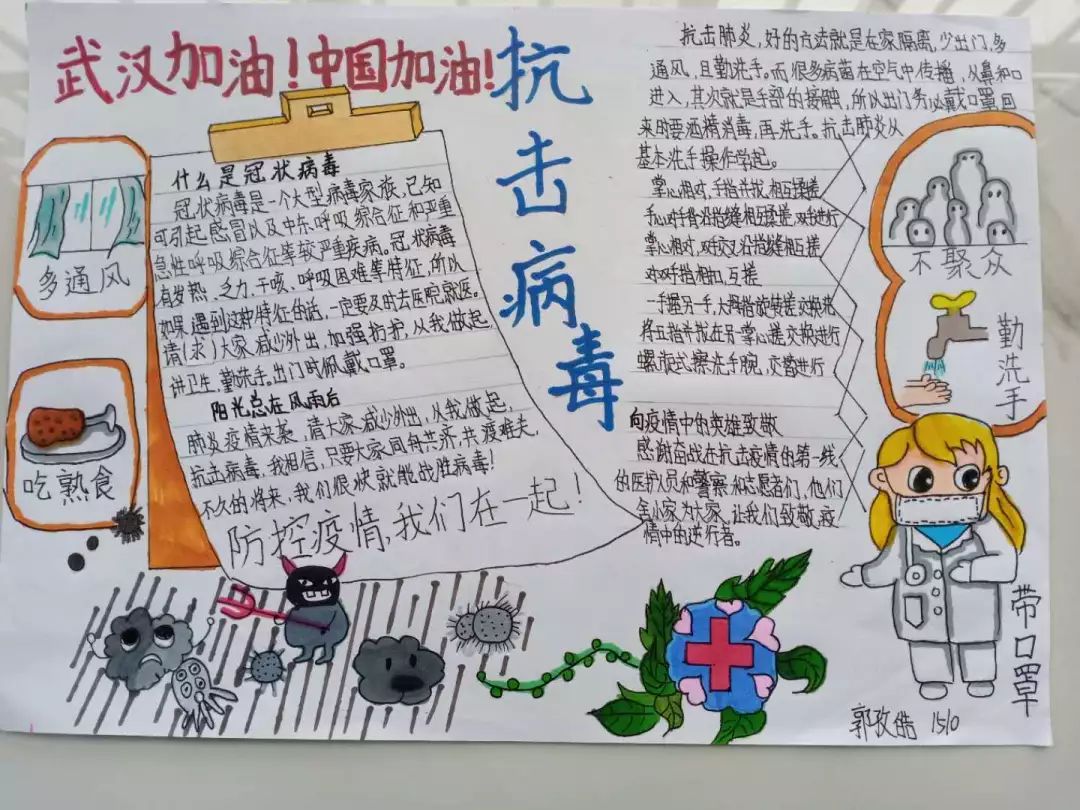 武汉加油!中国加油!
抗击病毒
多通风
吃熟食
什么是冠状病毒
冠状病毒是一个大型病毒家族,已知
可引起感冒以及中东呼吸综合征和严重
急性呼吸综合征等较严重疾病。冠状病毒
有发热、乏力、干咳、呼吸困难等特征,所以
如果遇到这种特征的话,一定要及时去医院就医。
请(求)大家减少外出,加强防护,从我做起,
讲卫生,勤洗手。出门时佩戴口罩。
阳光总在风雨后
肺炎疫情来袭,请大家减少外出,从我做起,
抗击病毒,我相信,只要大家同舟共济,共渡难关,
不久的将来,我们很快就能战胜病毒!
防控疫情,我们在一起!
抗击肺炎,好的方法就是在家隔离,少出门,多
通风,且勤洗手。而很多病菌在空气中传播,从鼻和口
进入,其次就是手部的接触,所以出门务必戴口罩,回
来时要酒精消毒,再洗手。抗击肺炎从
基本洗手操作学起。
掌心相对,手指并拢,相互揉搓
手心对手背沿指缝相互揉搓,双手进行
掌心相对,双手交叉沿指缝相互搓
双手指相扣,互搓
一手握另一手大拇指旋转搓,交换来
将五指并拢在另一掌心搓,交换进行
螺旋式擦洗手腕,交替进行
向疫情中的英雄致敬
感谢奋战在抗击疫情的第一线
的医护人员和警察和志愿者们,他们
舍小家为大家,让我们致敬,疫
情中的逆行者。
不聚众
勤洗手
带口罩
郭孜皓 1510